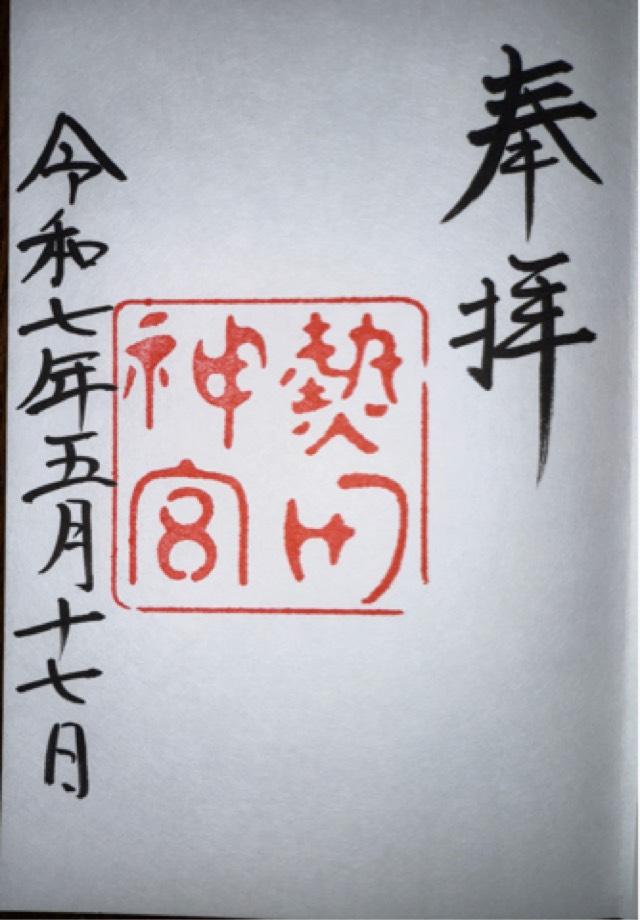 奉拝
熱田
神宮
令和七年五月十七日